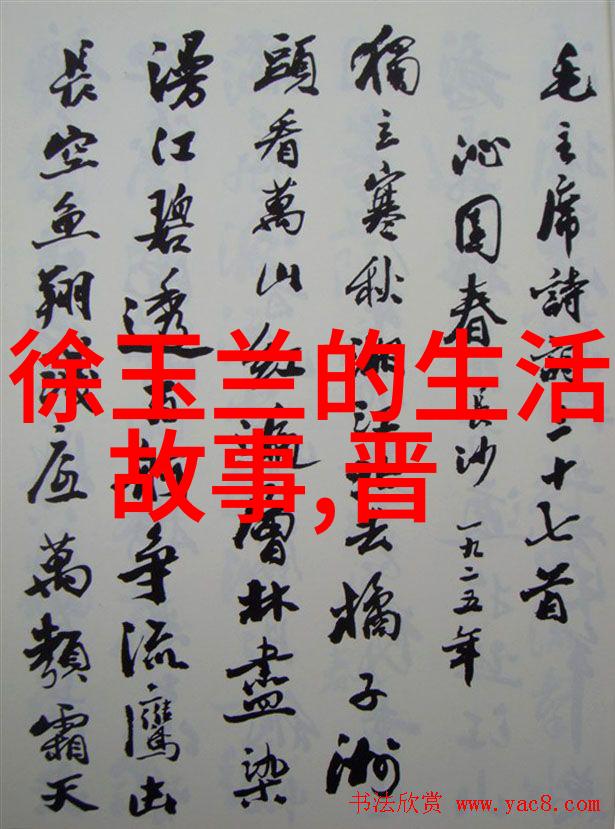 毛主席詩詞三十七首
沁園春 長沙 一九二五年
獨立寒秋湘江北去橘子洲
頭看萬山紅遍層林盡染
漫江碧透百舸争流鷹击
長空魚翔浅底萬類霜天
徐玉兰的生活
故事,晋
书法欣赏 www.yac8.com